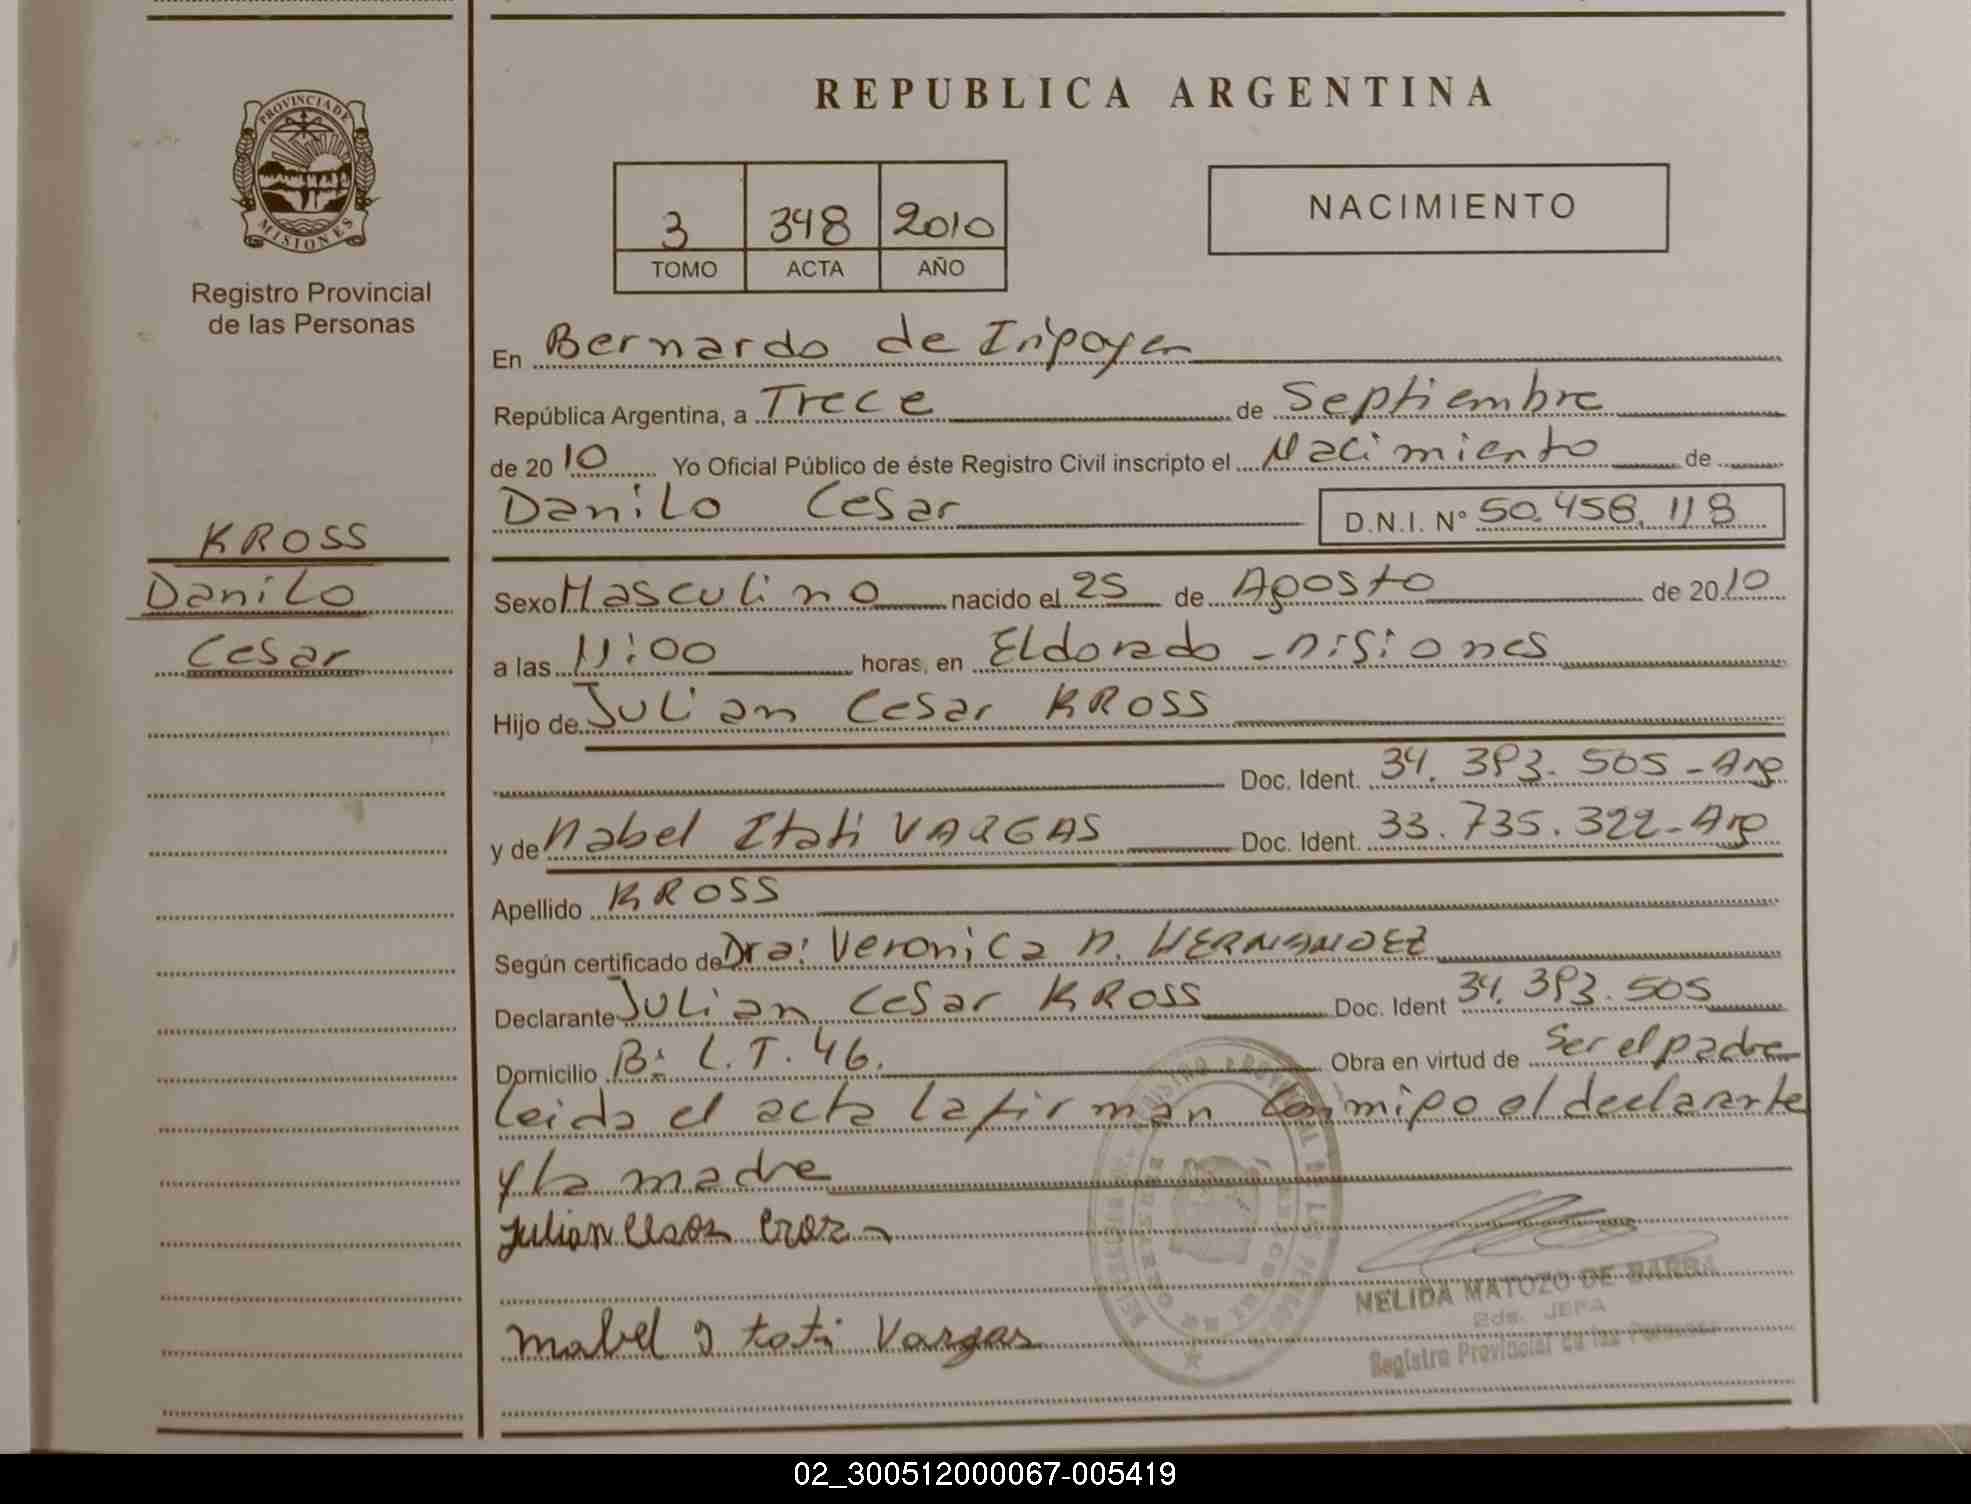 REPUBLICA ARGENTINA
PROVINCIA DE
MISIONES
Registro Provincial
de las Personas
3 348 2010
TOMO ACTA AÑO
NACIMIENTO
En Bernardo de Iripoyen
República Argentina, a Trece de Septiembre
de 2010 Yo Oficial Público de éste Registro Civil inscripto el Nacimiento de
Danilo Cesar D.N.I. Nº 50.458.118
KROSS
Danilo
Cesar
Sexo Masculino nacido el 25 de Agosto de 2010
a las 11:00 horas, en Eldorado - Misiones
Hijo de Julian Cesar KROSS
Doc. Ident. 34.393.505 - Arg
y de Mabel Itati VARGAS Doc. Ident. 33.735.322 - Arg
Apellido KROSS
Según certificado de Dra: Veronica M. HERNANDEZ
Declarante Julian Cesar KROSS Doc. Ident 34.393.505
Domicilio Bº L.T. 46. Obra en virtud de Ser el padre
Leida el acta la firman conmigo el declarante
y la madre
Julian
Mabel I tati Vargas
NELIDA MATOZO DE BARRA
JEFA
Registro Provincial de las Personas
02_300512000067-005419